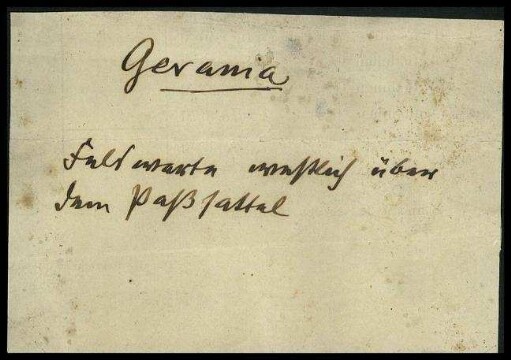 Gerania
Felswarte westlich über
dem Paßsattel